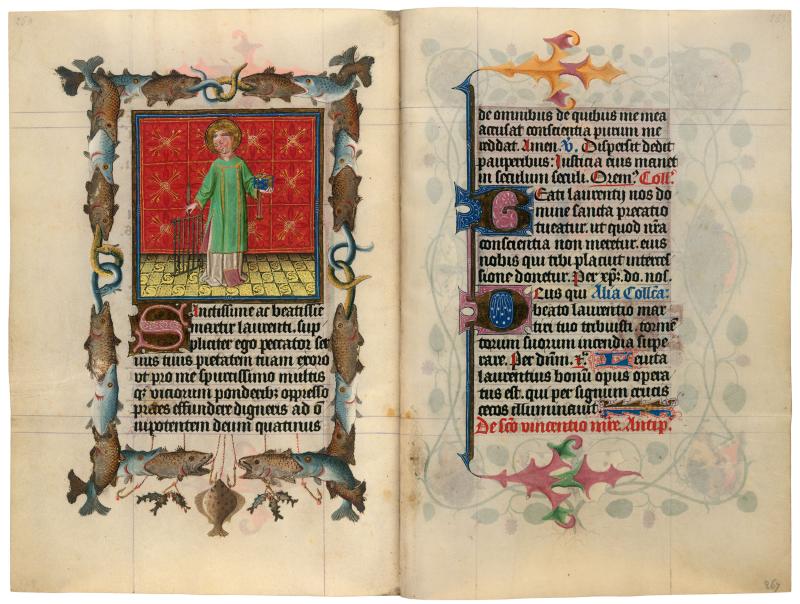 Sanctissime ac beatissie
martir laurenti. sup
pliciter ego peccator ser
uus tuus pietatem tuam exoro
vt pro me spurcissimo multis
qȝ viciorum ponderibȝ oppresso
preces effundere digneris ad o
nipotentem deum quatinus
de omnibus de quibus me mea
accusat conscientia purum me
reddat. Amen. V. Dispersit dedit
pauperibus: Iusticia eius manet
in seculum seculi. Orem9. Coll.
Beati laurentij nos do
mine sancta precatio
tueatur. ut quod nra
conscientia non meretur. eius
nobis qui tibi placuit interces
sione donetur. Per xpm. do. nos.
Deus qui Alia Collca:
beato laurentio mar
tiri tuo tribuisti. torme
torum suorum incendia supe
rare. Per dnm. Leuita
laurentius bonu opus opera
tus est. qui per signum crucis
cecos illuminauit
De sco vincentio mre. Antip.
267